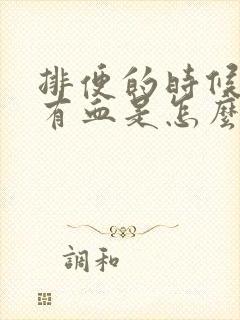 排便的時候
有血是怎麼
調和